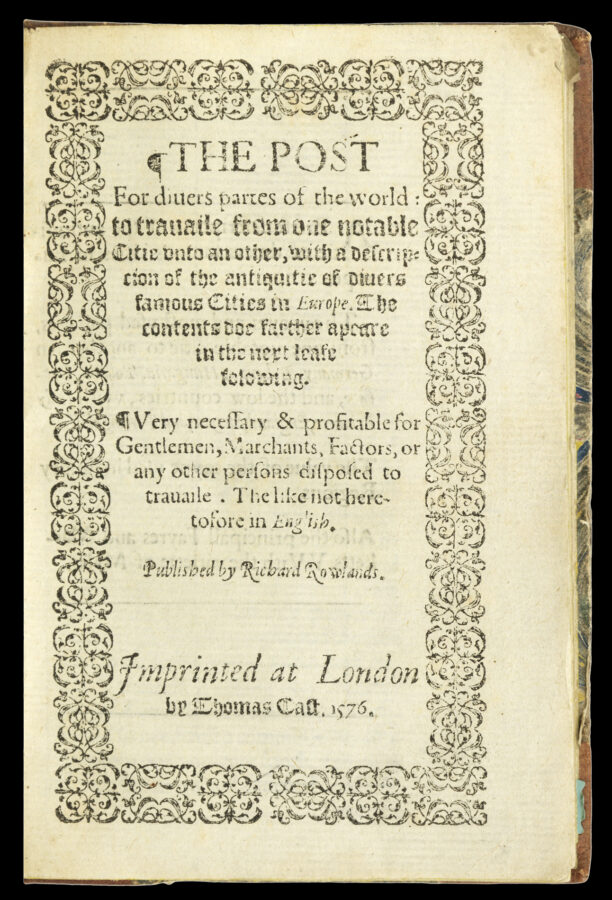 ¶THE POST
For diuers partes of the world:
to trauaile from one notable
Citie vnto an other, with a descrip-
cion of the antiquitie of diuers
famous Cities in Europe. The
contents doe farther apeare
in the next leafe
folowing.
¶ Very necessary & profitable for
Gentlemen, Marchants, Factors, or
any other persons disposed to
trauaile. The like not here-
tofore in English.
Published by Richard Rowlands.
Imprinted at London
by Thomas East. 1576.